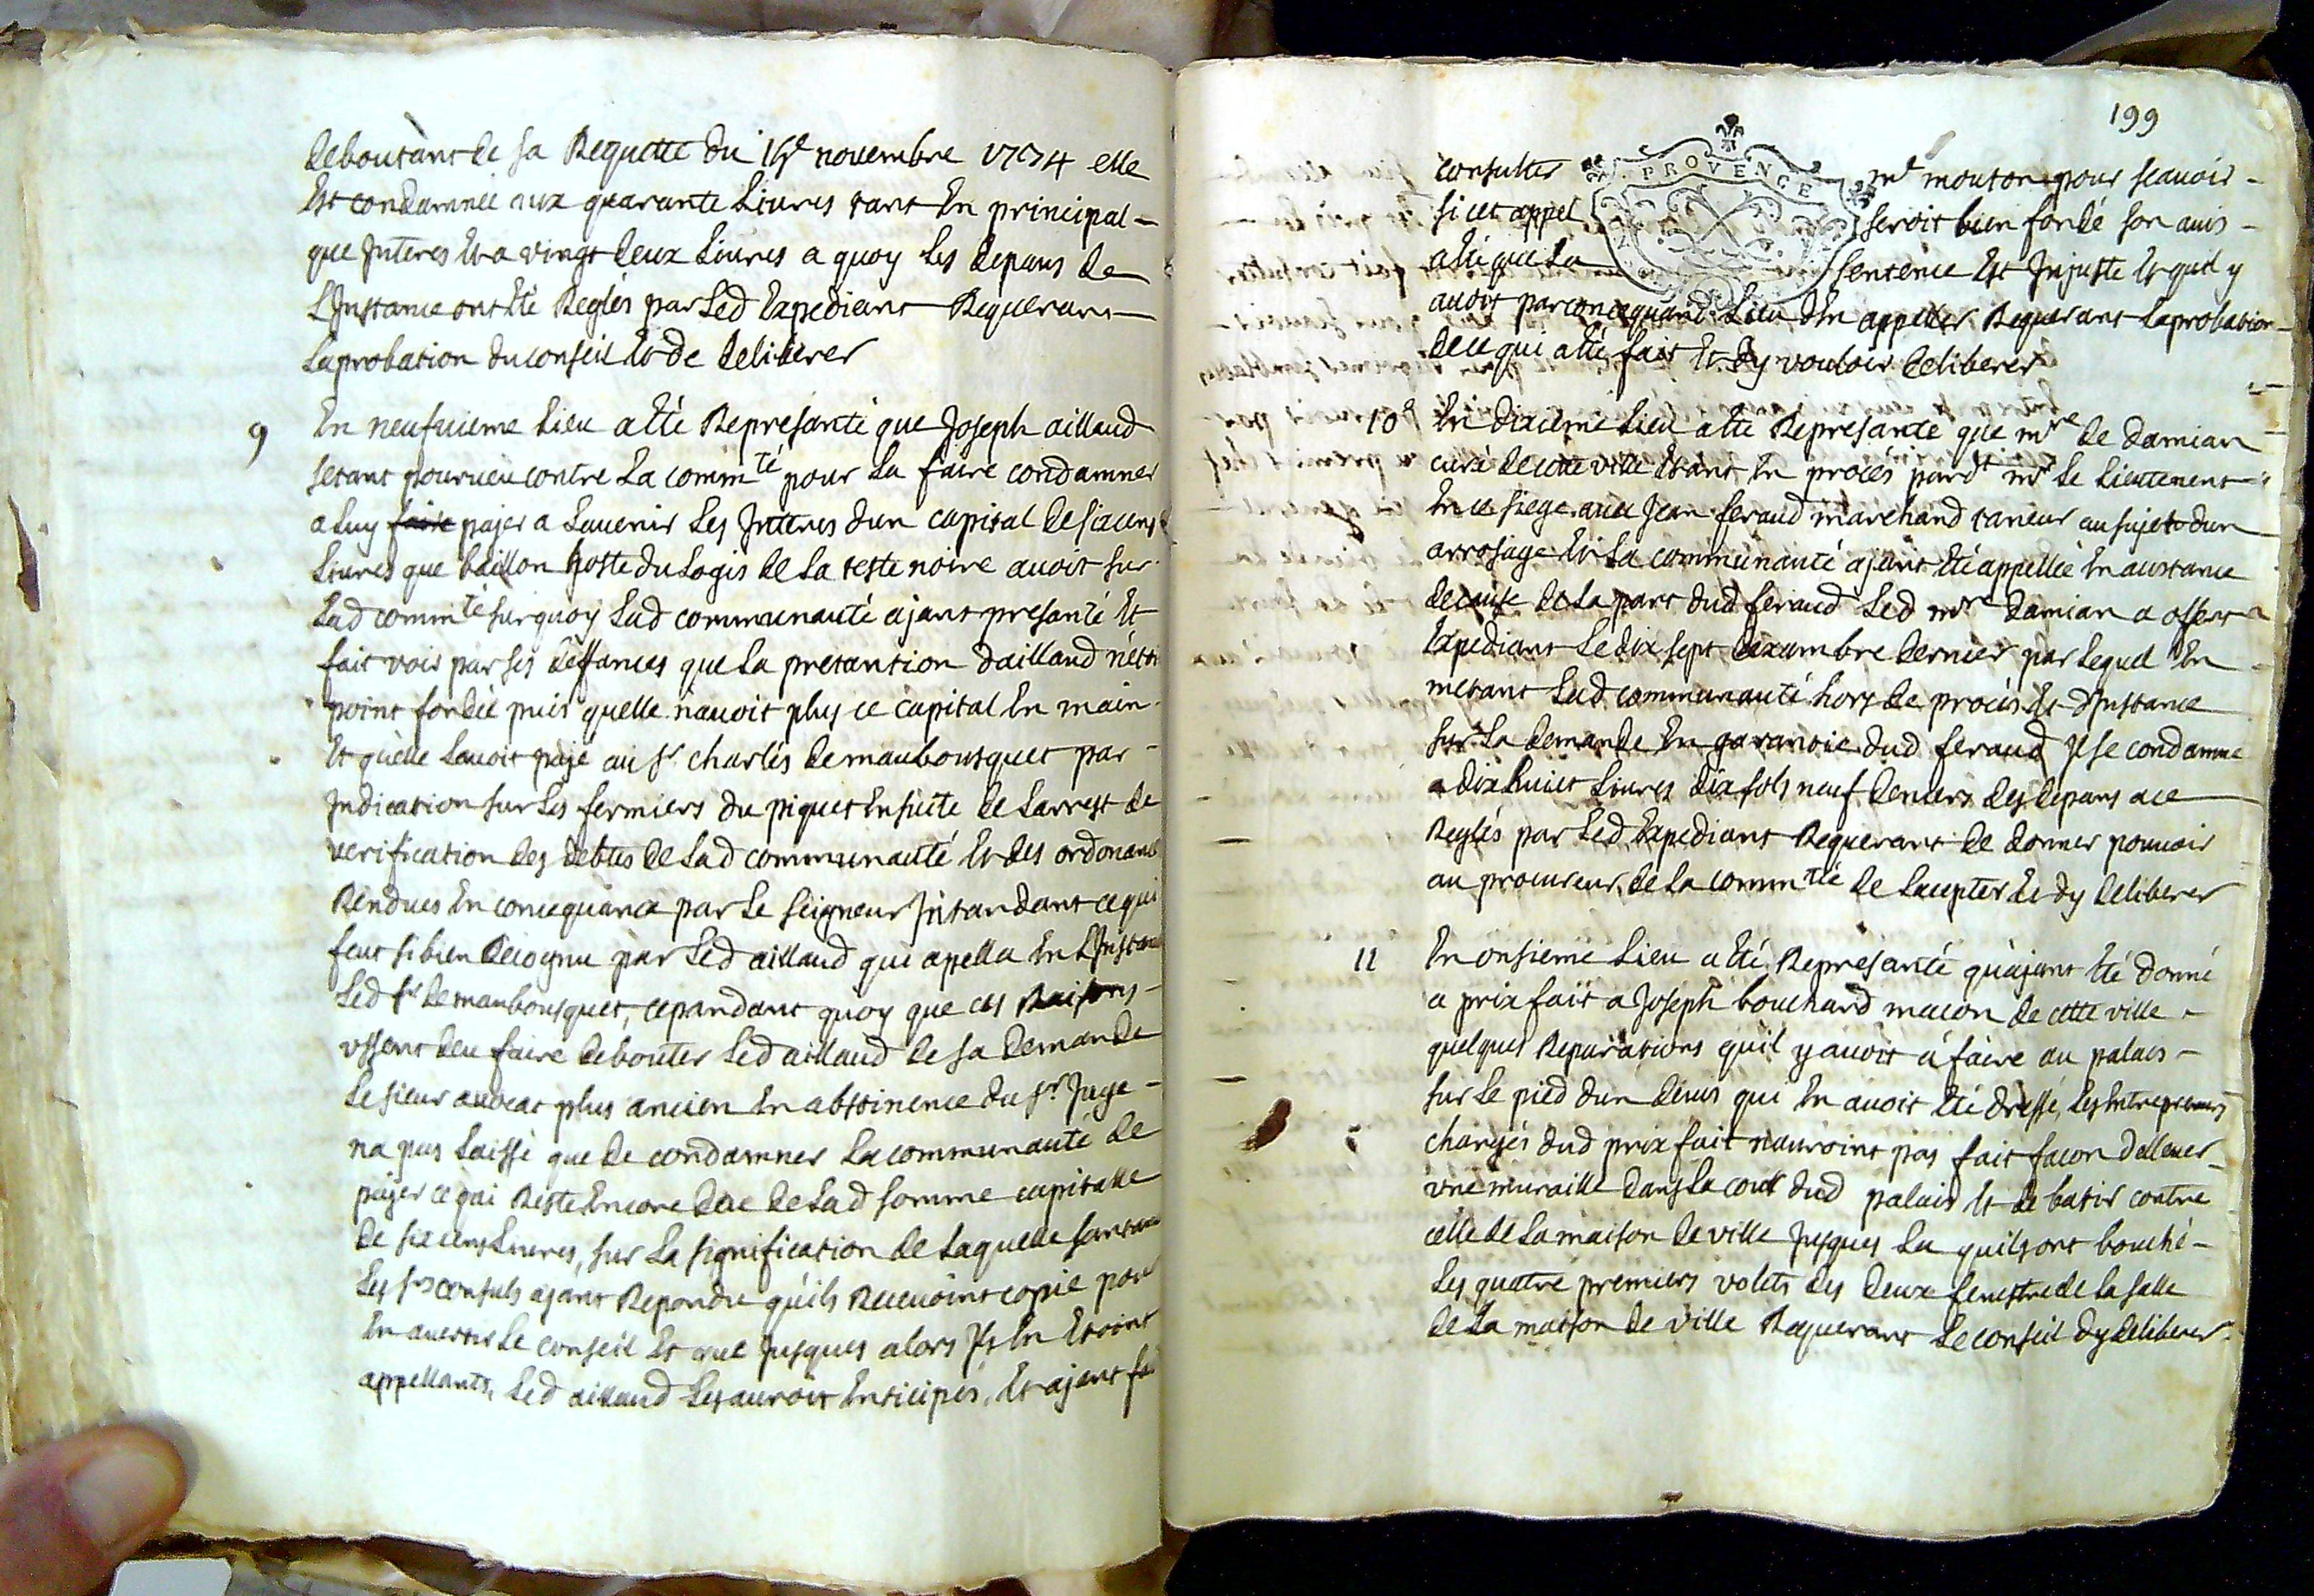 deboutant de sa Requette du 16e novembre 1704 elle
Est condamnée aux quarante Livres tant En principal
que Interes Et a vingt deux Livres a quoy Les depans de
LInstance ont Eté Reglés par Led Expediant Requerant
Laprobation du conseil Et de deliberer
9 En neufvieme Lieu a Eté Represanté que Joseph aillaud
setant pourvieu contre La commté pour La faire condamner
a Luy faire pajer a Lavenir Les Interes dun capital de six cens
Livres que baillon hoste du Logis de La teste noire avoit sur
Lad commté surquoy Lad communauté ajant presanté Et
fait voir par ses deffances que La pretantion daillaud nétt
point fondée puis quelle navoit plus ce capital En main
Et quelle Lavoit pajé au sr charles demaubousquet par
Indication sur Les fermiers du piquet Ensuite de Larrest de
verification des debtes de Lad communauté Et des ordonances
Rendues En consequance par Le seigneur Intandant ce qui
feut si bien Recognu par Led aillaud qui apella En LInstance
Led sr demaubousquet, cepandant quoy que ces Raisons
ussent deu faire debouter Led aillaud de sa demande
Le sieur avocat plus ancien En abstinence du sr Juge
na pas Laissé que de condamner La communauté de
pajer ce qui Reste Encore deue de Lad somme capitalle
de six cens Livres, sur La signification de Laquelle santance
Les srs consuls ajant Repondu quils Recevoint copie pour
En avertir Le conseil Et que Jusques alors Ils En Etoint
appellants, Led aillaud Les auroit Enticipés, Et ajant fait
199
PROVENCE
consulter mr mouton pour scavoir
si cet appel seroit bien fondé son avis
a Eté que La sentence Est Injuste Et quil y
avoit par concequand Lieu dEn appeller Requerant Laprobation
de ce qui a Eté fait Et dy vouloir deliberer
10e En dixieme Lieu a Eté Represanté que mre de damian
curé de cette ville Etant En procés pardt mr Le Lieutenent
En ce siege avec Jean feraud marchand taneur au sujet dun
arrosage Et La communauté ajant Eté appellée En austance
de cause de La part dud feraud Led mre damian a offert
Expediant Le dix sept dexambre dernier par Lequel En
metant Lad communauté hors de procés Et dInstance
sur La demande En garantie dud feraud Il se condamne
a dix huict Livres dix sols neuf deniers des depans a ce
Reglés par Led Expediant Requerant de donner pouvoir
au procureur de La commté de Laccepter Et dy deliberer
11 En onsieme Lieu a Eté Represanté quajant Eté donné
a prix fait a Joseph bouchard macon de cette ville
quelques Reparations quil y avoit a faire au palais
sur Le pied dun devis qui En avoit Eté dressé, Les Entrepreneurs
chargés dud prix fait nauroint pas fait facon dellever
une muraille dans La court dud palais Et de batir contre
celle de La maison de ville Jusques La quils ont bouché
Les quatre premiers volets des deux fenestre de La salle
de La maison de ville Requerant Le conseil dy deliberer